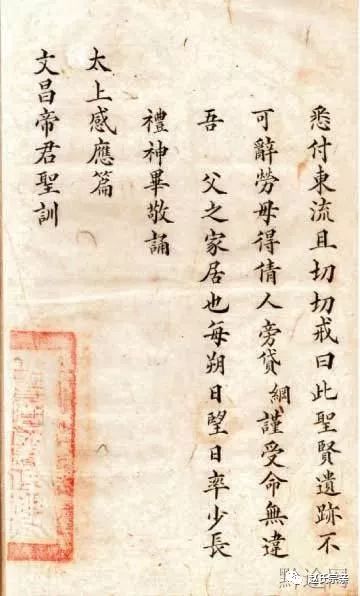 悉付東流且切切戒曰此聖賢遺跡不
可辭勞毋得倩人旁貸綱謹受命無違
吾 父之家居也每朔日望日率少長
禮神畢敬誦
太上感應篇
文昌帝君聖訓
赵氏宗亲